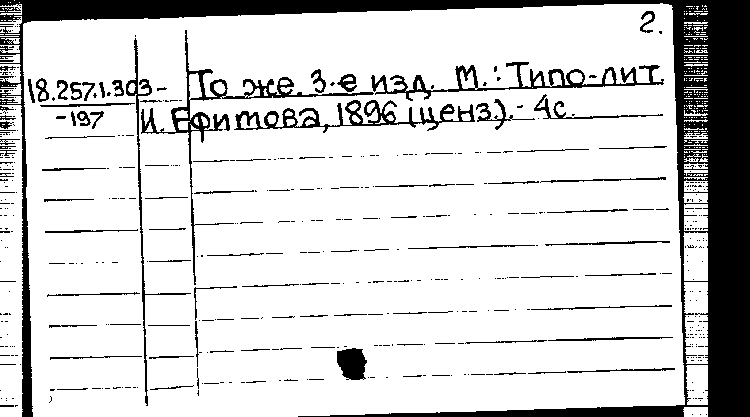 2.
18.257.1.303- То же. 3-е изд. М.: Типо-лит.
-197 И. Ефимова, 1896 (ценз.).- 4с.